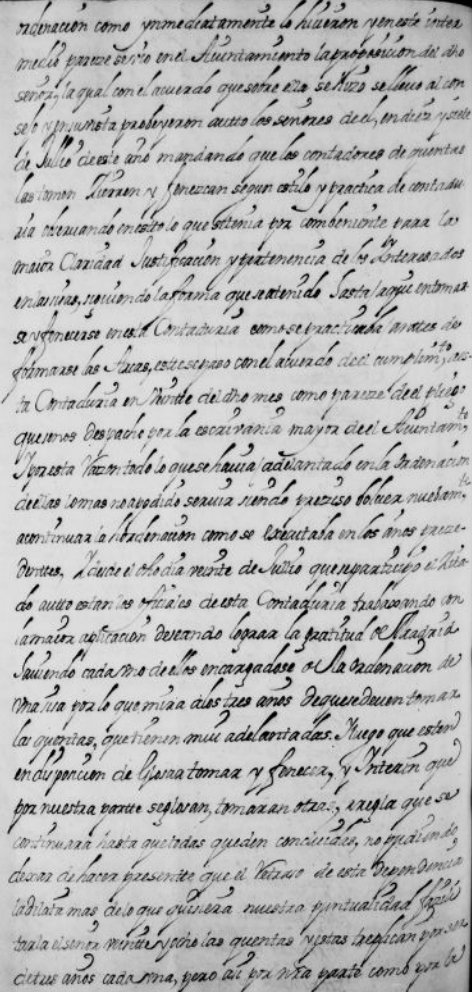 ordenacion como ynmediatamente lo hicieron y en este inter
medio pareze se vio en el Aiuntamiento la proposicion del dho
señor, la qual con el acuerdo que sobre ella se hizo se llevo al con
sejo y en su vista probeyeron autto los señores de el, en diez y siete
de Jullio de este año mandando que los contadores de quentas
las tomen Zierren y fenezcan segun estilo y practica de contadu
ria obserbando en esto lo que se tenia por combeniente para la
maior Claridad Justificacion y pertenencia de los Ynteresados
en las sisas, siguiendo la forma que se a tenido hasta aqui en tomar
se y fenecerse en esta Contaduria como se practicaba antes de
formarse las Arcas, este se paso con el acuerdo de el cumplimto, a es-
ta Contaduria en Veintte del dho mes como pareze de el pliego
que se nos despacho por la escrivania mayor de el Aiuntamto
Y por esta Razon todo lo que se havia adelantado en la hordenacion
de ellas tomas no a podido servir siendo preziso bolver nuebamte
a continuar la hordenacion como se executaba en los años preze
denttes, Y desde el dho dia veinte de Jullio que se partizipo el zita
do autto estan los oficiales de esta Contaduria trabaxando con
la maior aplicacion deseando lograr la gratitud de Madrid
haviendo cada uno de ellos encargadose de la ordenacion de
una sisa por lo que mira a los tres años de que se deven tomar
las quentas, que tienen mui adelantadas. Y luego que esten
en disposicion de glosar tomar y fenecer, y Ynterin que
por nuestra partte se glosan, tomaran otras, regla que se
continuara hasta que todas queden concluidas, no pudiendo
dexar de hacer presentte que el Retraso de esta Dependencia
la dilata mas de lo que quisiera nuestra puntualidad
el señor veintte y ocho las quentas y estas se aplican por ser
de tres años cada una, pero asi por nra parte como por la